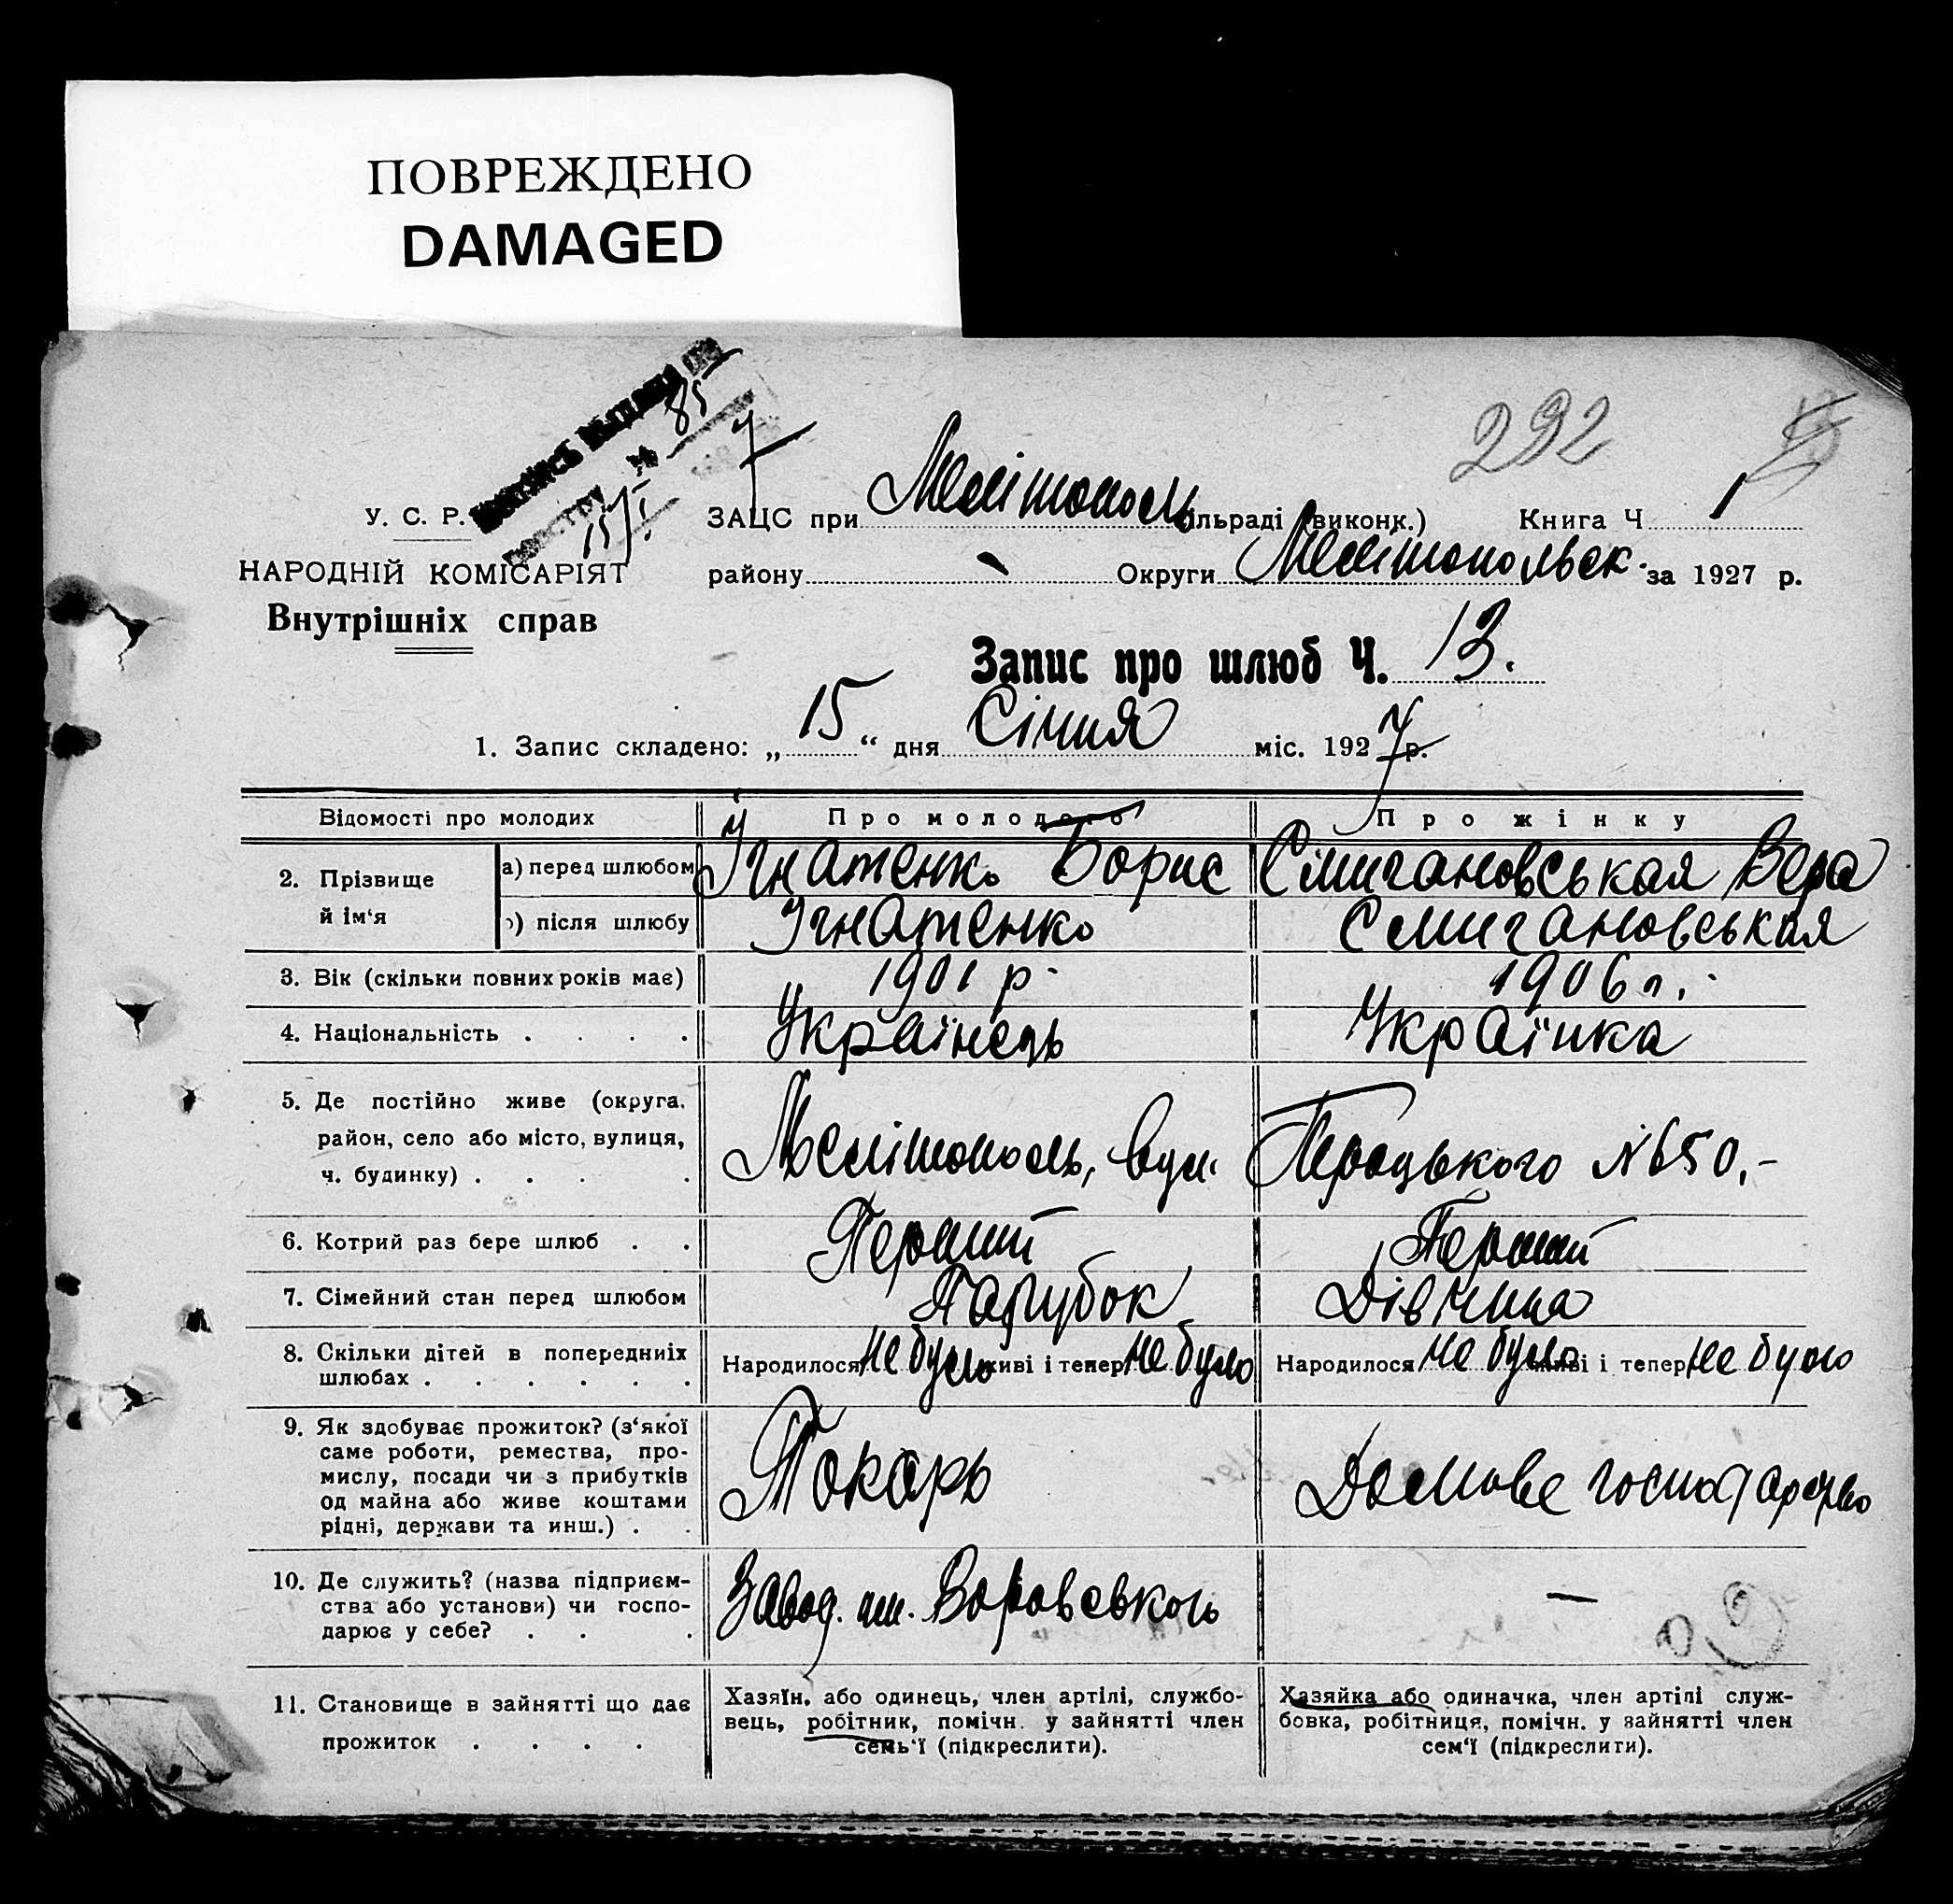 ПОВРЕЖДЕНО
DAMAGED
292
У. С. Р.
НАРОДНІЙ КОМІСАРІЯТ
Внутрішніх справ
№ 85
15/I
7
ЗАЦС при Мелітополь сільраді (виконк.) Книга Ч 1
району Округи Мелітопольск. за 1927 р.
Запис про шлюб Ч. 13.
1. Запис складено: „15“ дня Січня міс. 1927 р.
Відомості про молодих
Про молодого
Про жінку
2. Прізвище й ім‘я
а) перед шлюбом
Ігнатенко Борис
Смигановськая Вера
б) після шлюбу
Ігнатенко
Смигановськая
3. Вік (скільки повних років має)
1901 р.
1906 р.
4. Національність . . . .
Українець
Українка
5. Де постійно живе (округа,
район, село або місто, вулиця,
ч. будинку) . . . .
Мелітополь, вул. №650,-
6. Котрий раз бере шлюб . .
Перший
Перший
7. Сімейний стан перед шлюбом
Парубок
Дівчина
8. Скільки дітей в попередниіх
шлюбах . . . . . .
Народилося не було живі і тепер не було
Народилося не було живі і тепер не було
9. Як здобуває прожиток? (з‘якої
саме роботи, ремества, про-
мислу, посади чи з прибутків
од майна або живе коштами
рідні, держави та инш.) . .
Токарь
Домове господарство
10. Де служить? (назва підприєм-
ства або установи) чи госпо-
дарює у себе? . . .
Завод. им. Воровського
—
11. Становище в зайнятті що дає
прожиток . . . .
Хазяїн, або одинець, член артілі, службо-
вець, робітник, помічн. у зайнятті член
семь‘ї (підкреслити).
Хазяйка або одиначка, член артілі служ-
бовка, робітниця, помічн. у зайнятті член
сем‘ї (підкреслити).